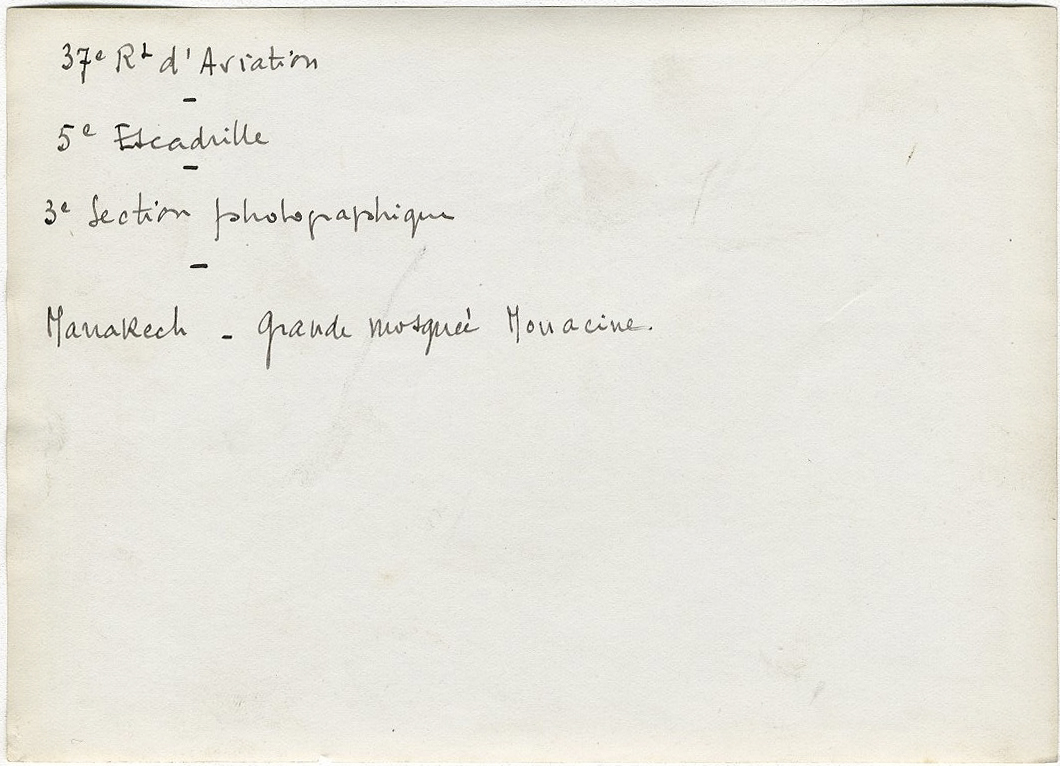 37e Rt d'Aviation
-
5e Escadrille
-
3e Section photographique
-
Marrakech - Grande mosquée Mouacine.